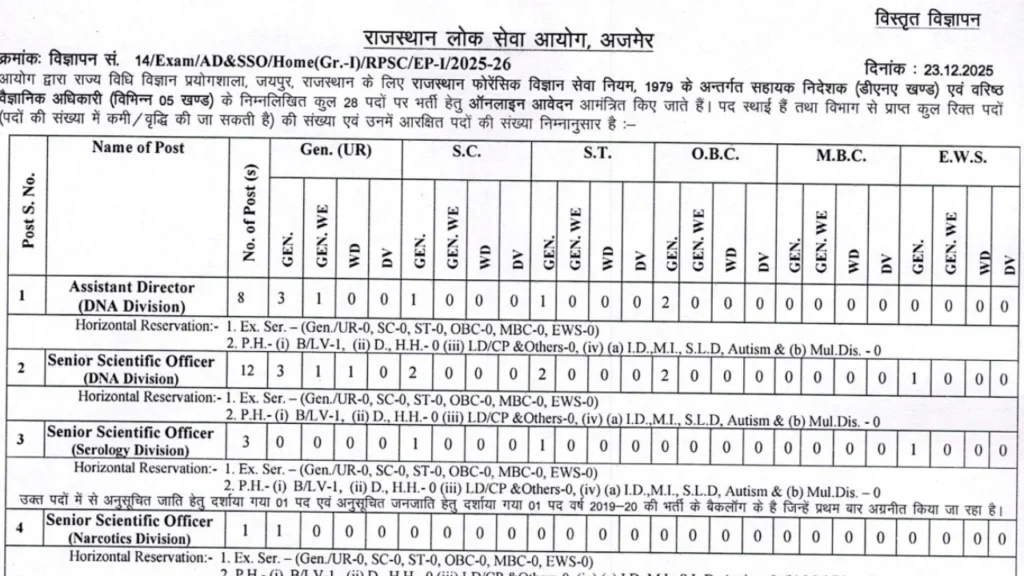 विस्तृत विज्ञापन
राजस्थान लोक सेवा आयोग, अजमेर
क्रमांकः विज्ञापन सं. 14/Exam/AD&SSO/Home(Gr.-I)/RPSC/EP-I/2025-26
दिनांक : 23.12.2025
आयोग द्वारा राज्य विधि विज्ञान प्रयोगशाला, जयपुर, राजस्थान के लिए राजस्थान फोरेंसिक विज्ञान सेवा नियम, 1979 के अन्तर्गत सहायक निदेशक (डीएनए खण्ड) एवं वरिष्ठ
वैज्ञानिक अधिकारी (विभिन्न 05 खण्ड) के निम्नलिखित कुल 28 पदों पर भर्ती हेतु ऑनलाइन आवेदन आमंत्रित किए जाते हैं। पद स्थाई हैं तथा विभाग से प्राप्त कुल रिक्त पदों
(पदों की संख्या में कमी/वृद्धि की जा सकती है) की संख्या एवं उनमें आरक्षित पदों की संख्या निम्नानुसार है :–
Post S. No. Name of Post No. of Post (s) Gen. (UR) S.C. S.T. O.B.C. M.B.C. E.W.S.
GEN. GEN. WE WD DV GEN. GEN. WE WD DV GEN. GEN. WE WD DV GEN. GEN. WE WD DV GEN. GEN. WE WD DV GEN. GEN. WE WD DV
1 Assistant Director 8 3 1 0 0 1 0 0 0 1 0 0 0 2 0 0 0 0 0 0 0 0 0 0 0
(DNA Division)
Horizontal Reservation:- 1. Ex. Ser. – (Gen./UR-0, SC-0, ST-0, OBC-0, MBC-0, EWS-0)
2. P.H.- (i) B/LV-1, (ii) D., H.H.- 0 (iii) LD/CP &Others-0, (iv) (a) I.D.,M.I., S.L.D, Autism & (b) Mul.Dis. - 0
2 Senior Scientific Officer 12 3 1 1 0 2 0 0 0 2 0 0 0 2 0 0 0 0 0 0 0 1 0 0 0
(DNA Division)
Horizontal Reservation:- 1. Ex. Ser. – (Gen./UR-0, SC-0, ST-0, OBC-0, MBC-0, EWS-0)
2. P.H.- (i) B/LV-1, (ii) D., H.H.- 0 (iii) LD/CP &Others-0, (iv) (a) I.D.,M.I., S.L.D, Autism & (b) Mul.Dis. - 0
3 Senior Scientific Officer 3 0 0 0 0 1 0 0 0 1 0 0 0 0 0 0 0 0 0 0 0 1 0 0 0
(Serology Division)
Horizontal Reservation:- 1. Ex. Ser. – (Gen./UR-0, SC-0, ST-0, OBC-0, MBC-0, EWS-0)
2. P.H.- (i) B/LV-1, (ii) D., H.H.- 0 (iii) LD/CP &Others-0, (iv) (a) I.D.,M.I., S.L.D, Autism & (b) Mul.Dis. – 0
उक्त पदों में से अनुसूचित जाति हेतु दर्शाया गया 01 पद एवं अनुसूचित जनजाति हेतु दर्शाया गया 01 पद वर्ष 2019–20 की भर्ती के बैकलॉग के है जिन्हें प्रथम बार अग्रनीत किया जा रहा है।
4 Senior Scientific Officer 1 1 0 0 0 0 0 0 0 0 0 0 0 0 0 0 0 0 0 0 0 0 0 0 0
(Narcotics Division)
Horizontal Reservation:- 1. Ex. Ser. – (Gen./UR-0, SC-0, ST-0, OBC-0, MBC-0, EWS-0)